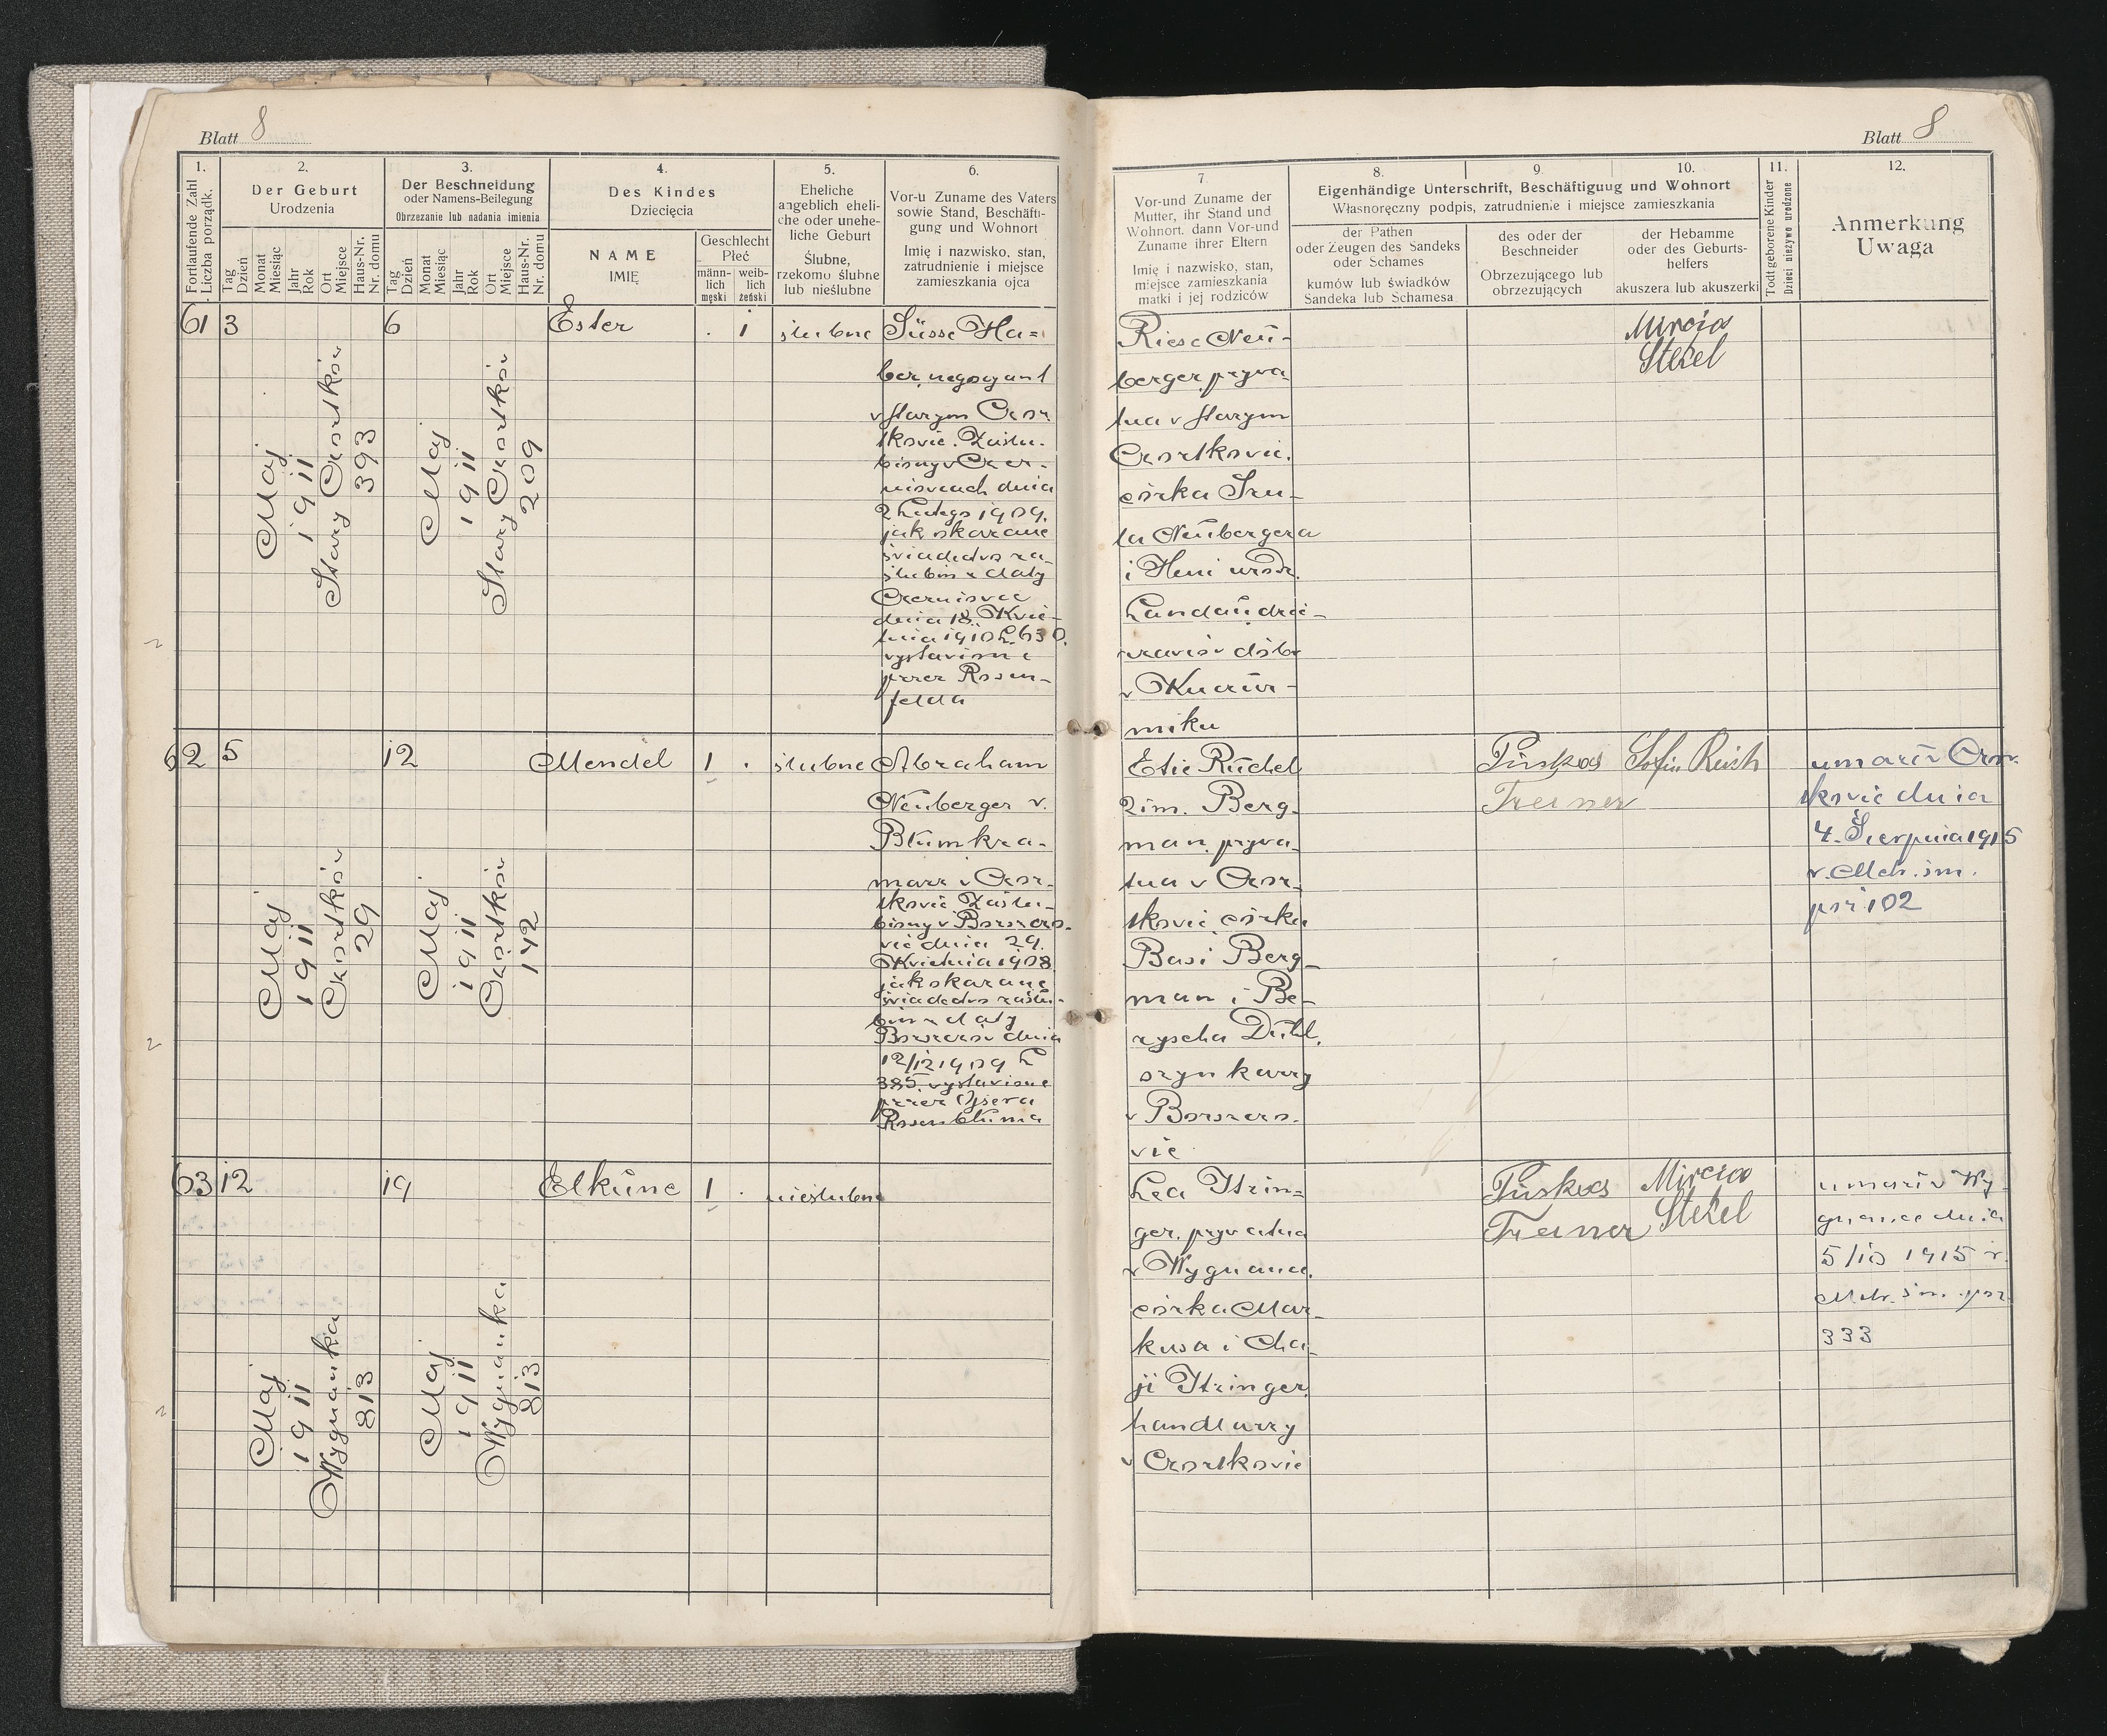 Blatt 8
1.
Fortlaufende Zahl
Liczba porządk.
2.
Der Geburt
Urodzenia
Tag
Dzień
Monat
Miesiąc
Jahr
Rok
Ort
Miejsce
Haus-Nr.
Nr. domu
3.
Der Beschneidung
oder Namens-Beilegung
Obrzezanie lub nadania imienia
Tag
Dzień
Monat
Miesiąc
Jahr
Rok
Ort
Miejsce
Haus-Nr.
Nr. domu
4.
Des Kindes
Dziecięcia
NAME
IMIĘ
Geschlecht
Płeć
männ-
lich
męski
weib-
lich
żeński
5.
Eheliche
angeblich eheli-
che oder unehe-
liche Geburt
Ślubne,
rzekomo ślubne
lub nieślubne
6.
Vor-u Zuname des Vaters
sowie Stand, Beschäfti-
gung und Wohnort
Imię i nazwisko, stan,
zatrudnienie i miejsce
zamieszkania ojca
61
3
Maj
1911
Stary Czortków
393
6
Maj
1911
Stary Czortków
209
Ester
. 1
ślubne
Süsse Ha=
ber, negocyant
w Starym Czor
tkowie. Zaślu-
biony w Czer-
niowcach dnia
2 Lutego 1909.
jak okazane
świadectwo za-
ślubin z daty
Czerniowce
dnia 18. Kwie-
tnia 1910 L. 630.
wystawione
przez Rosen-
felda
62
5
Maj
1911
Czortków
29
12
Maj
1911
Czortków
142
Mendel
1 .
ślubne
Abraham
Neuberger v.
Blumkra-
marz w Czor-
tkowie Zaślu-
biony w Borszczo-
wie dnia 29.
Kwietnia 1908
jak okazane
świadectwo zaślu-
bin z daty
Borszczów dnia
12/12 1909 L
385. wystawione
przez Ojsera
Rosenbluma
63
12
Maj
1911
Wygnanka
813
19
Maj
1911
Wygnanka
813
Elkune
1 .
nieślubne
Blatt 8
7.
Vor-und Zuname der
Mutter, ihr Stand und
Wohnort, dann Vor-und
Zuname ihrer Eltern
Imię i nazwisko, stan,
miejsce zamieszkania
matki i jej rodziców
8.
9.
10.
Eigenhändige Unterschrift, Beschäftiguug und Wohnort
Własnoręczny podpis, zatrudnienie i miejsce zamieszkania
der Pathen
oder Zeugen des Sandeks
oder Schames
kumów lub świadków
Sandeka lub Schamesa
des oder der
Beschneider
Obrzezującego lub
obrzezujących
der Hebamme
oder des Geburts-
helfers
akuszera lub akuszerki
11.
Todt geborene Kinder
Dzieci nieżywo urodzone
12.
Anmerkung
Uwaga
Riese Neu-
berger, prywa-
tna w Starym
Czortkowie.
córka Sru-
la Neubergera
i Heni urodz.
Landau dzie-
rzawców dóbr
w Kuczur-
miku
Mircia
Stekel
Etie Ruchel
2 im. Berg-
man, prywa-
tna w Czor-
tkowie córka
Basi Berg-
man i Be-
ryscha
szynkarzy
w Borszczo-
wie
Pinkas
Treiner
Reish
umarł w Czor-
tkowie dnia
4. Sierpnia 1915
v. Metr. śm.
poz 102
Lea Itzin=
ger, prywatna
w Wygnance.
córka Mar-
kusa i Cha-
ji Itzinger.
handlarzy
w Czortkowie
Pinkas
Treiner
Mircia
Stekel
umarł w Wy-
gnance dnia
5/10 1915 v.
Metr. śm. poz
333